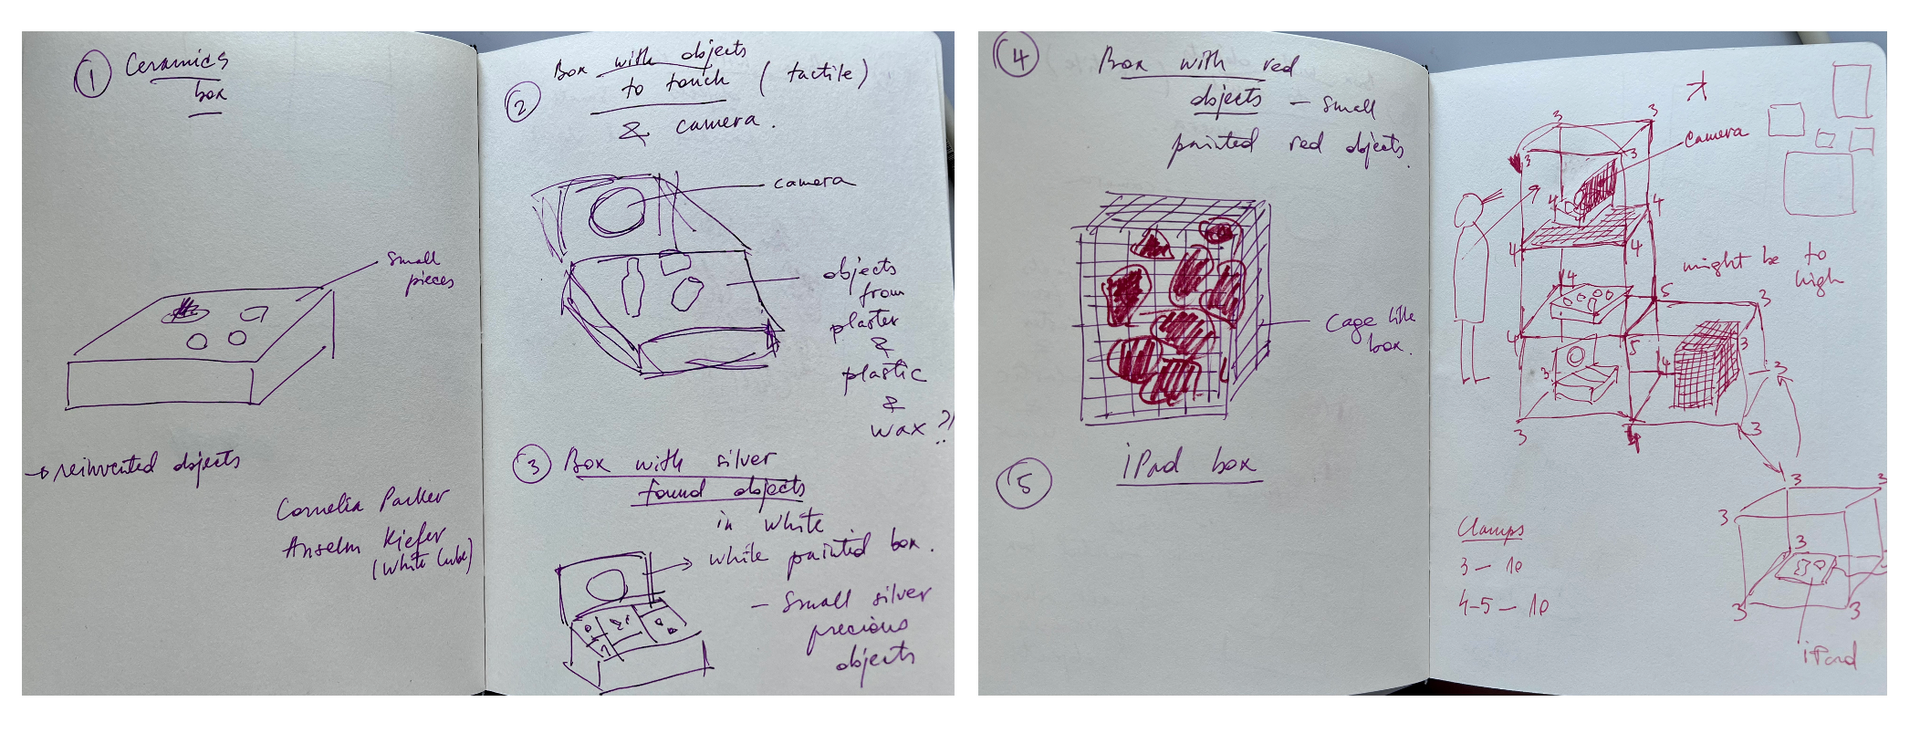 1 Ceramics
box
small
pieces
→ reinvented objects
Cornelia Parker
Anselm Kiefer
(White Cube)
2 Box with objects
to touch (tactile)
& camera.
camera
objects
from
plaster
&
plastic
&
wax?!
3 Box with silver
found objects
in white
→ white painted box.
– small silver
precious
objects
4 Box with red
objects – small
painted red objects.
cage like
box.
5 iPad box
camera
3
3
3
3
4
4
4
4
might be to
high
4
5
3
4
5
3
4
3
3
3
4
3
Clamps
3 – 10
4-5 – 10
3
3
3
3
3
3
iPad